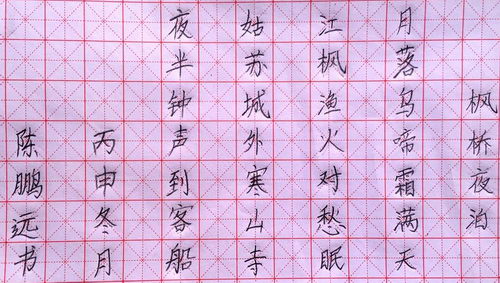 枫桥夜泊
月落乌啼霜满天
江枫渔火对愁眠
姑苏城外寒山寺
夜半钟声到客船
丙申冬月
陈鹏远书